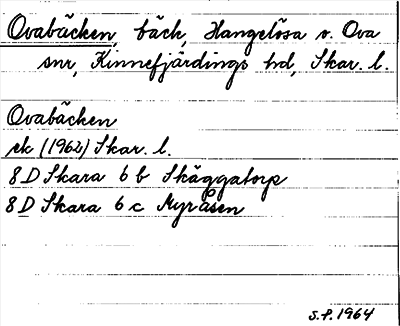 Ovabäcken, bäck, Hangelösa v. Ova
snr, Kinnefjärdings hd, Skar. l.
Ovabäcken
ek (1962) Skar. l.
8 D Skara 6 b Skäggatorp
8 D Skara 6 c Myråsen
S.P. 1964